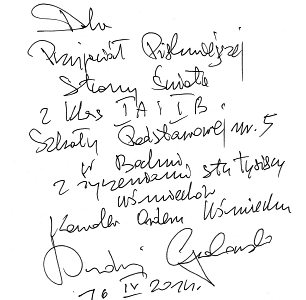 Dla
Przyjaciół Piękniejszej
Strony Świata
z klas I A i I B
Szkoły Podstawowej nr. 5
w Bochni
z życzeniami stu tysięcy
uśmiechów
Kawaler Orderu Uśmiechu
Andrzej Grabowski
16 IV 2014r.